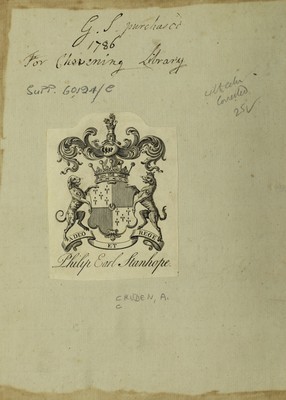 G. S. purchas'd
1786
For Chevening Library
Supp. 60,194/C
25/
A DEO ET REGE
Philip Earl Stanhope.
CRUDEN, A.
C